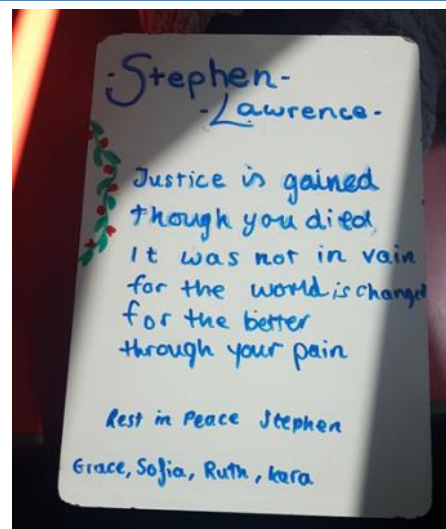 -Stephen-
-Lawrence-
Justice is gained
though you died,
It was not in vain
for the world is changed
for the better
through your pain
Rest in Peace Stephen
Grace, Sofia, Ruth, Kara